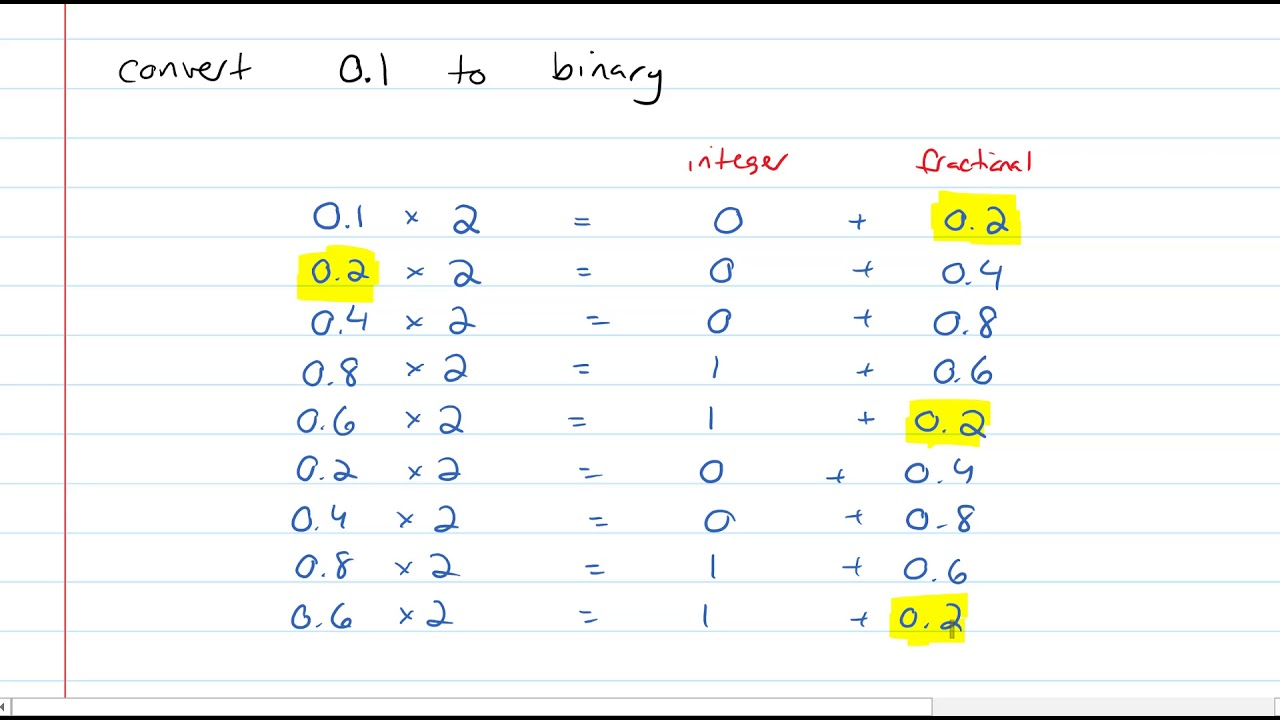 convert 0.1 to binary
integer fractional
0.1 × 2 = 0 + 0.2
0.2 × 2 = 0 + 0.4
0.4 × 2 = 0 + 0.8
0.8 × 2 = 1 + 0.6
0.6 × 2 = 1 + 0.2
0.2 × 2 = 0 + 0.4
0.4 × 2 = 0 + 0.8
0.8 × 2 = 1 + 0.6
0.6 × 2 = 1 + 0.2